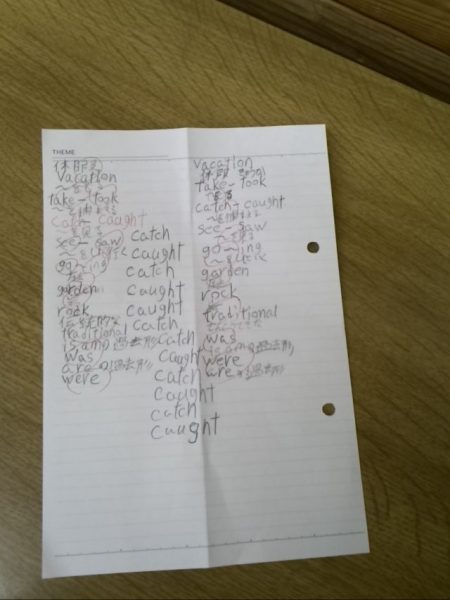 THEME
vacation
take - took
catch - caught
see - saw
go ~ing
garden
rock
伝統的な
traditional
is amの過去形
was
areの過去形
were
catch
caught
catch
caught
catch
caught
catch
caught
catch
caught
catch
caught
vacation
take - took
catch - caught
see - saw
go ~ing
garden
rock
traditional
was
is amの過去形
were
areの過去形